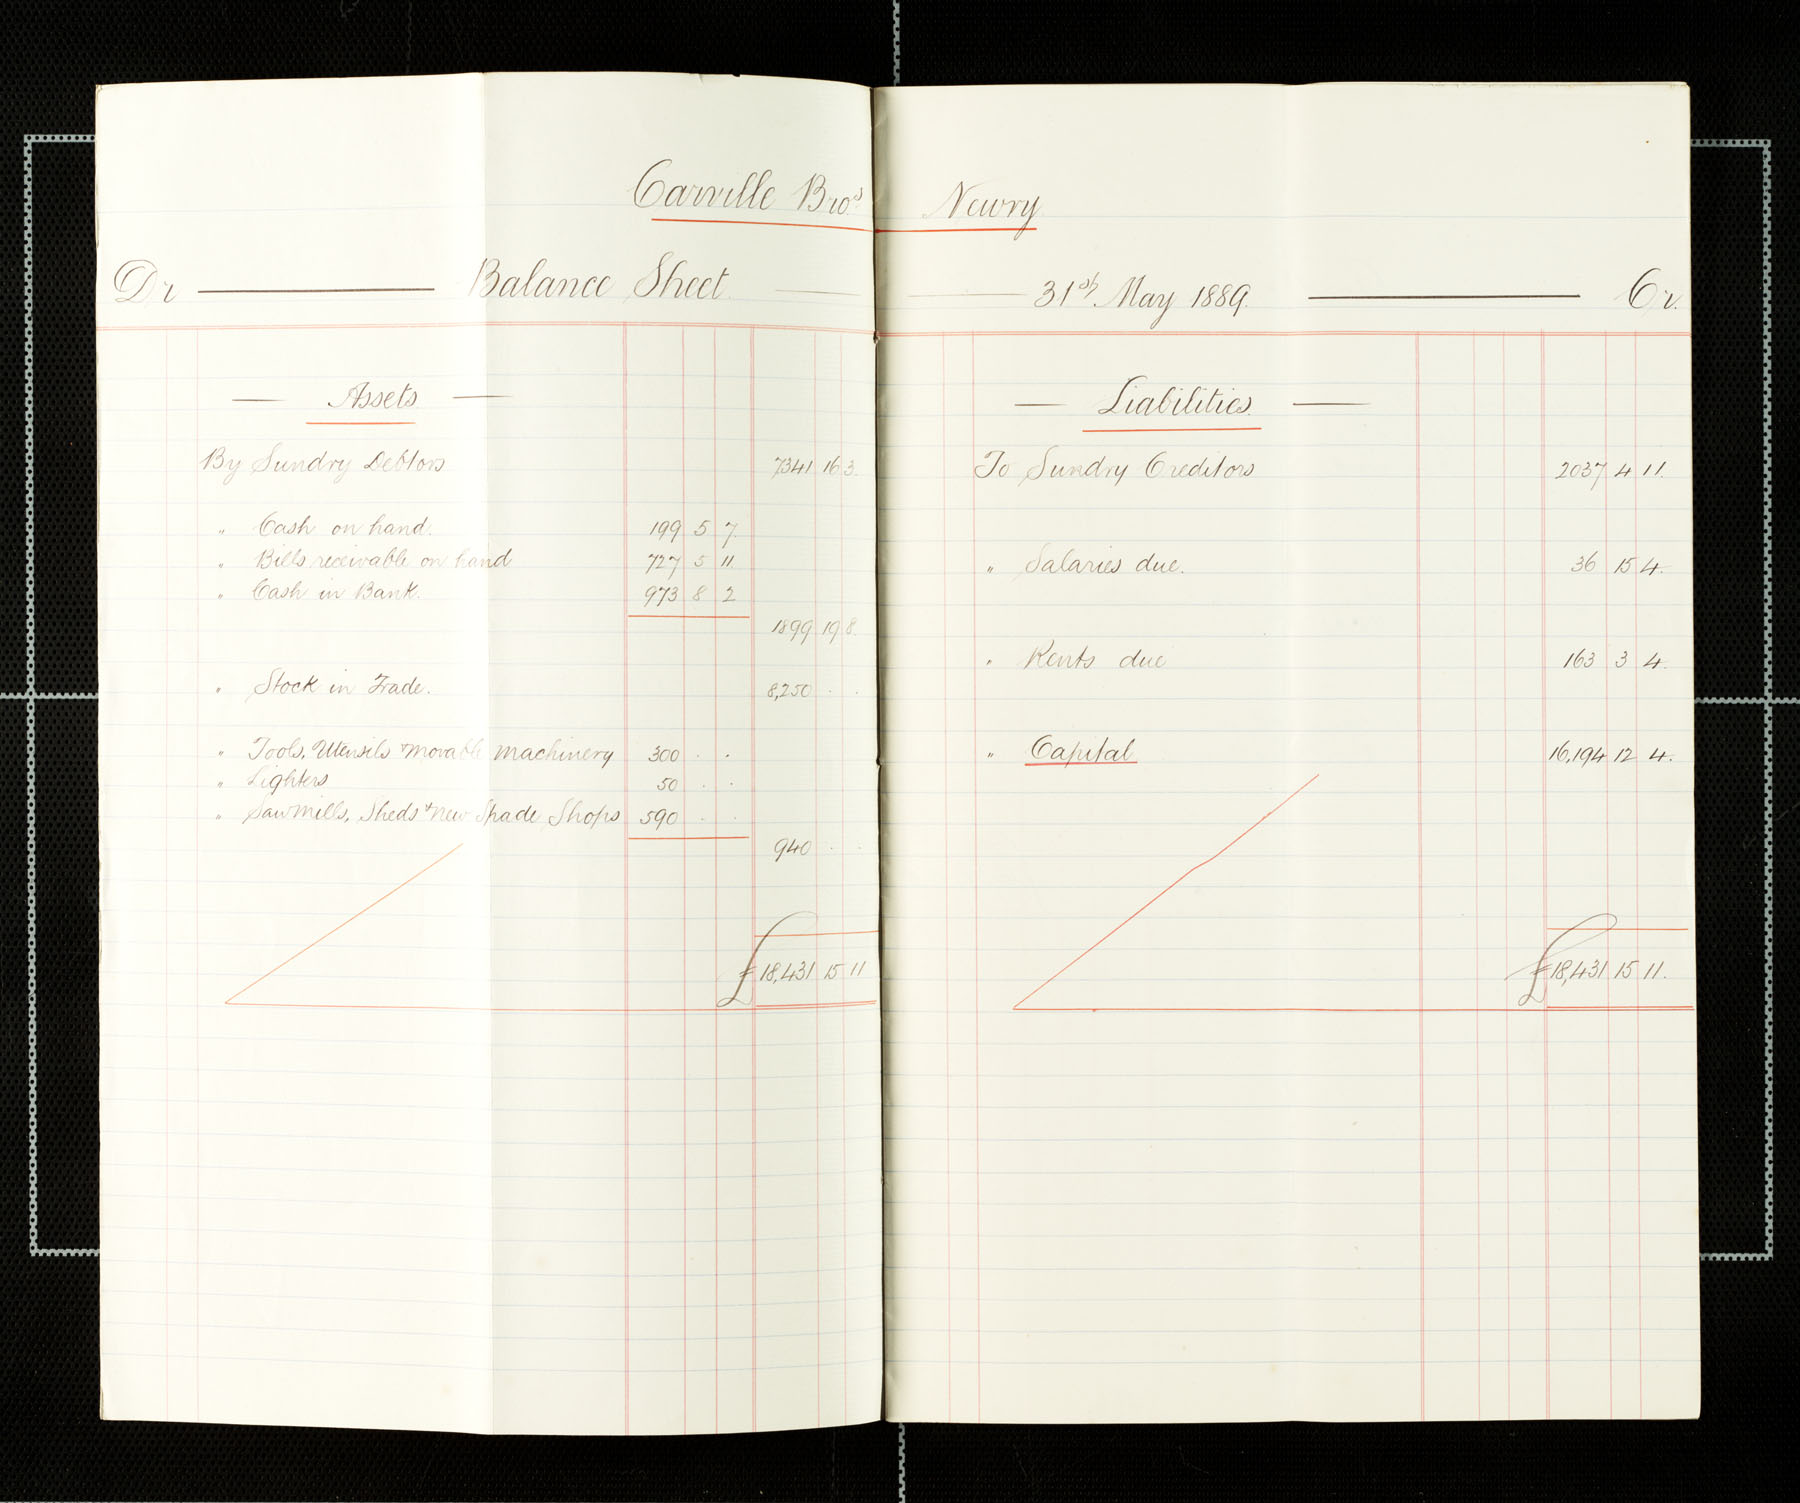 Carville Bros Newry
Dr Balance Sheet 31st May 1889. Cr.
Assets
By Sundry Debtors 7341 16 3.
" Cash on hand. 199 5 7.
" Bills receivable on hand 727 5 11
" Cash in Bank. 973 8 2
1899 19 8.
" Stock in Trade. 8,250 . .
" Tools, Utensils & movable machinery 300 . .
" Lighters 50 . .
" Sawmills, Sheds & new Spade Shops 590 . .
940 . .
£18,431 15 11
Liabilities.
To Sundry Creditors 2037 4 11.
" Salaries due. 36 15 4.
" Rents due 163 3 4.
" Capital 16,194 12 4.
£18,431 15 11.